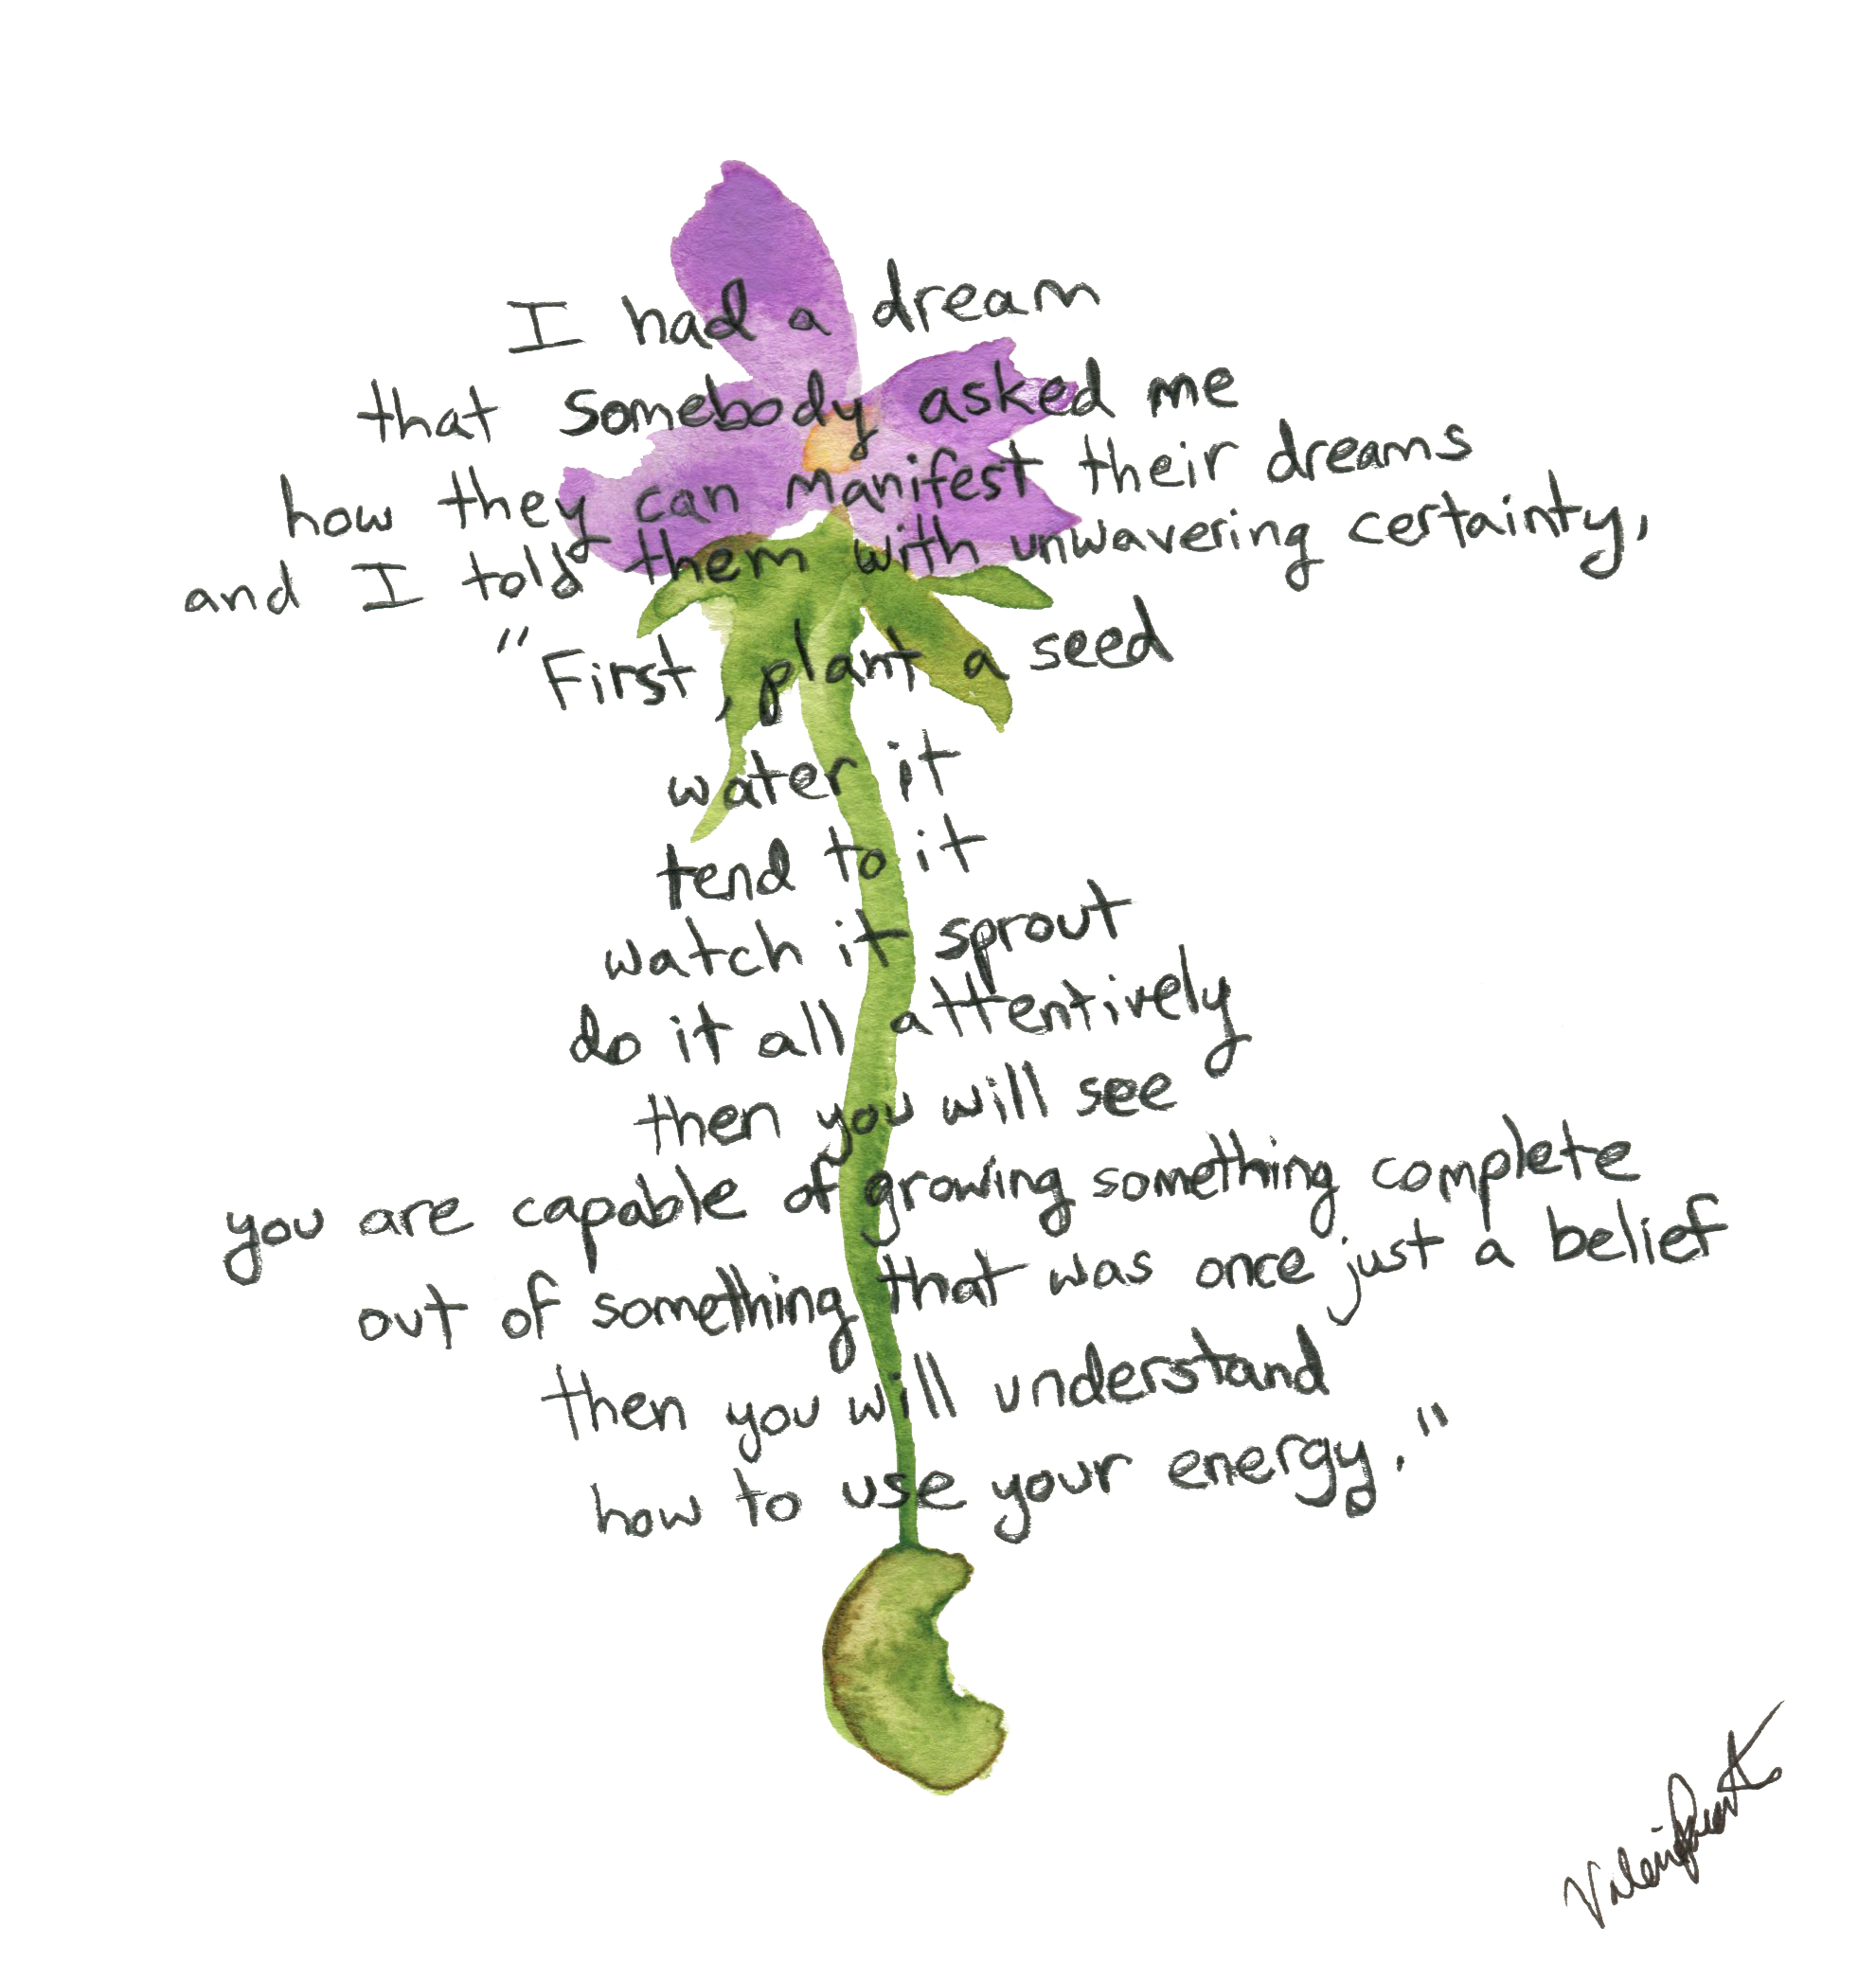 I had a dream
that somebody asked me
how they can manifest their dreams
and I told them with unwavering certainty,
"First, plant a seed
water it
tend to it
watch it sprout
do it all attentively
then you will see
you are capable of growing something complete
out of something that was once just a belief
then you will understand
how to use your energy."